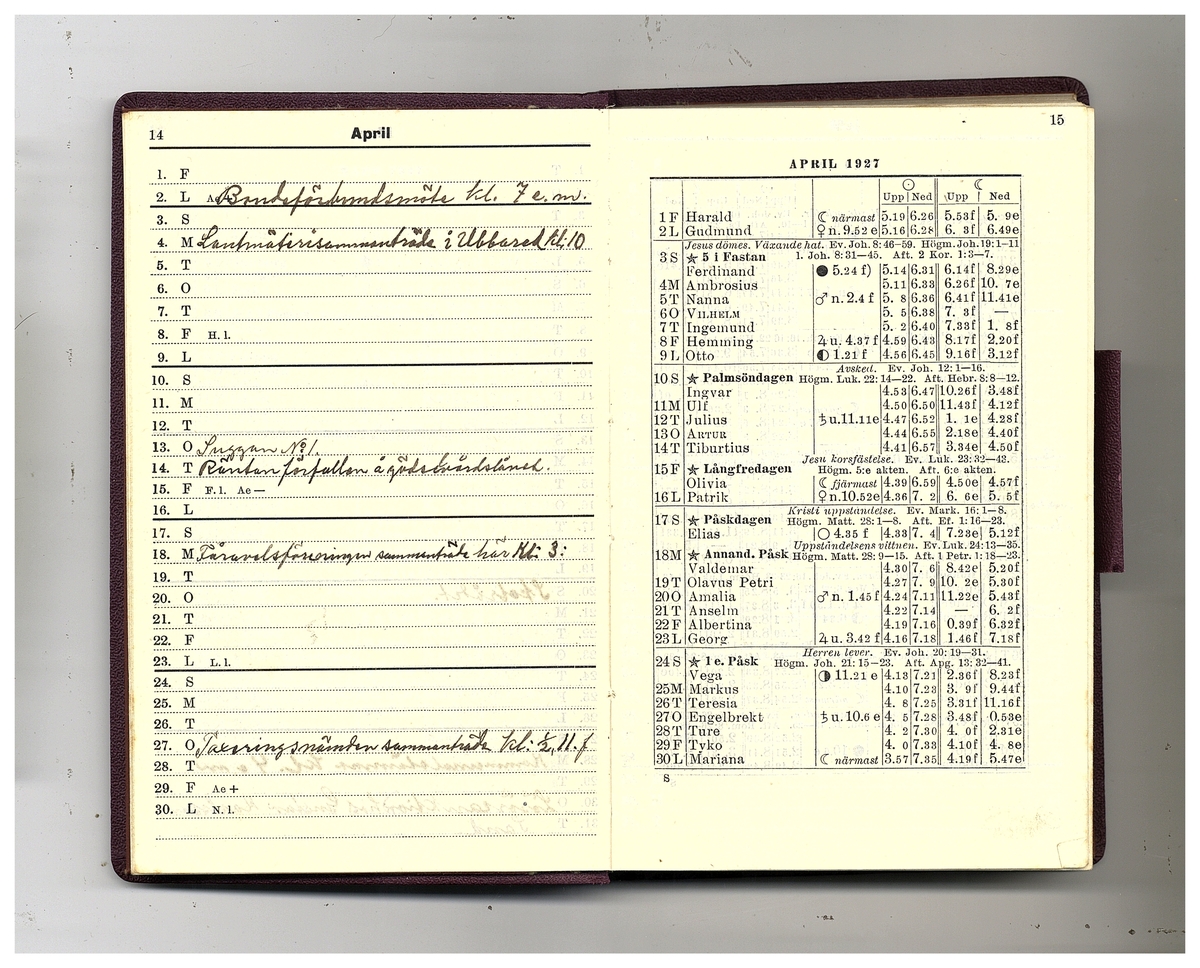 14 April
1. F
2. L Ae + Bondeförbundsmöte kl. 7 e.m.
3. S
4. M Lantmäterisammanträde i Ubbared kl: 10
5. T
6. O
7. T
8. F H. l.
9. L
10. S
11. M
12. T
13. O Suggan No 1.
14. T Räntan förfallen å gödselvårdslånet.
15. F F. l. Ae —
16. L
17. S
18. M Fåravelsföreningen sammanträde här Kl: 3:
19. T
20. O
21. T
22. F
23. L L. l.
24. S
25. M
26. T
27. O Taxeringsnämden sammanträde kl: ½ 11. f
28. T
29. F Ae +
30. L N. l.
15
APRIL 1927
☉ ☾
Upp Ned Upp Ned
1 F Harald ☾ närmast 5.19 6.26 5.53f 5. 9e
2 L Gudmund ♀ n. 9.52 e 5.16 6.28 6. 3f 6.49e
Jesus dömes. Växande hat. Ev. Joh. 8: 46–59. Högm. Joh. 19: 1–11
3 S ★ 5 i Fastan 1. Joh. 8: 31–45. Aft. 2 Kor. 1: 3–7.
Ferdinand ● 5.24 f) 5.14 6.31 6.14f 8.29e
4M Ambrosius 5.11 6.33 6.26f 10. 7e
5T Nanna ♂ n. 2.4 f 5. 8 6.36 6.41f 11.41e
6O VILHELM 5. 5 6.38 7. 3f —
7T Ingemund 5. 2 6.40 7.33f 1. 8f
8F Hemming ♃ u. 4.37 f 4.59 6.43 8.17f 2.20f
9L Otto ◐ 1.21 f 4.56 6.45 9.16f 3.12f
Avsked. Ev. Joh. 12: 1–16.
10 S ★ Palmsöndagen Högm. Luk. 22: 14–22. Aft. Hebr. 8: 8–12.
Ingvar 4.53 6.47 10.26f 3.48f
11M Ulf 4.50 6.50 11.43f 4.12f
12T Julius ♄ u. 11.11e 4.47 6.52 1. 1e 4.28f
13O ARTUR 4.44 6.55 2.18e 4.40f
14T Tiburtius 4.41 6.57 3.34e 4.50f
Jesu korsfästelse. Ev. Luk. 23: 32–43.
15 F ★ Långfredagen Högm. 5:e akten. Aft. 6:e akten.
Olivia ☾ fjärmast 4.39 6.59 4.50e 4.57f
16L Patrik ♀ n. 10.52e 4.36 7. 2 6. 6e 5. 5f
Kristi uppståndelse. Ev. Mark. 16: 1–8.
17 S ★ Påskdagen Högm. Matt. 28: 1–8. Aft. Ef. 1: 16–23.
Elias ○ 4.35 f 4.33 7. 4 7.23e 5.12f
Uppståndelsens vittnen. Ev. Luk. 24: 13–35.
18M ★ Annand. Påsk Högm. Matt. 28: 9–15. Aft. 1 Petr. 1: 18–23.
Valdemar 4.30 7. 6 8.42e 5.20f
19T Olavus Petri 4.27 7. 9 10. 2e 5.30f
20O Amalia ♂ n. 1.45 f 4.24 7.11 11.22e 5.43f
21T Anselm 4.22 7.14 — 6. 2f
22F Albertina 4.19 7.16 0.39f 6.32f
23L Georg ♃ u. 3.42 f 4.16 7.18 1.46f 7.18f
Herren lever. Ev. Joh. 20: 19–31.
24 S ★ 1 e. Påsk Högm. Joh. 21: 15–23. Aft. Apg. 13: 32–41.
Vega ◑ 11.21 e 4.13 7.21 2.36f 8.23f
25M Markus 4.10 7.23 3. 9f 9.44f
26T Teresia 4. 8 7.25 3.31f 11.16f
27O Engelbrekt ♄ u. 10.6 e 4. 5 7.28 3.48f 0.53e
28T Ture 4. 2 7.30 4. 0f 2.31e
29F Tyko 4. 0 7.33 4.10f 4. 8e
30L Mariana ☾ närmast 3.57 7.35 4.19f 5.47e
S